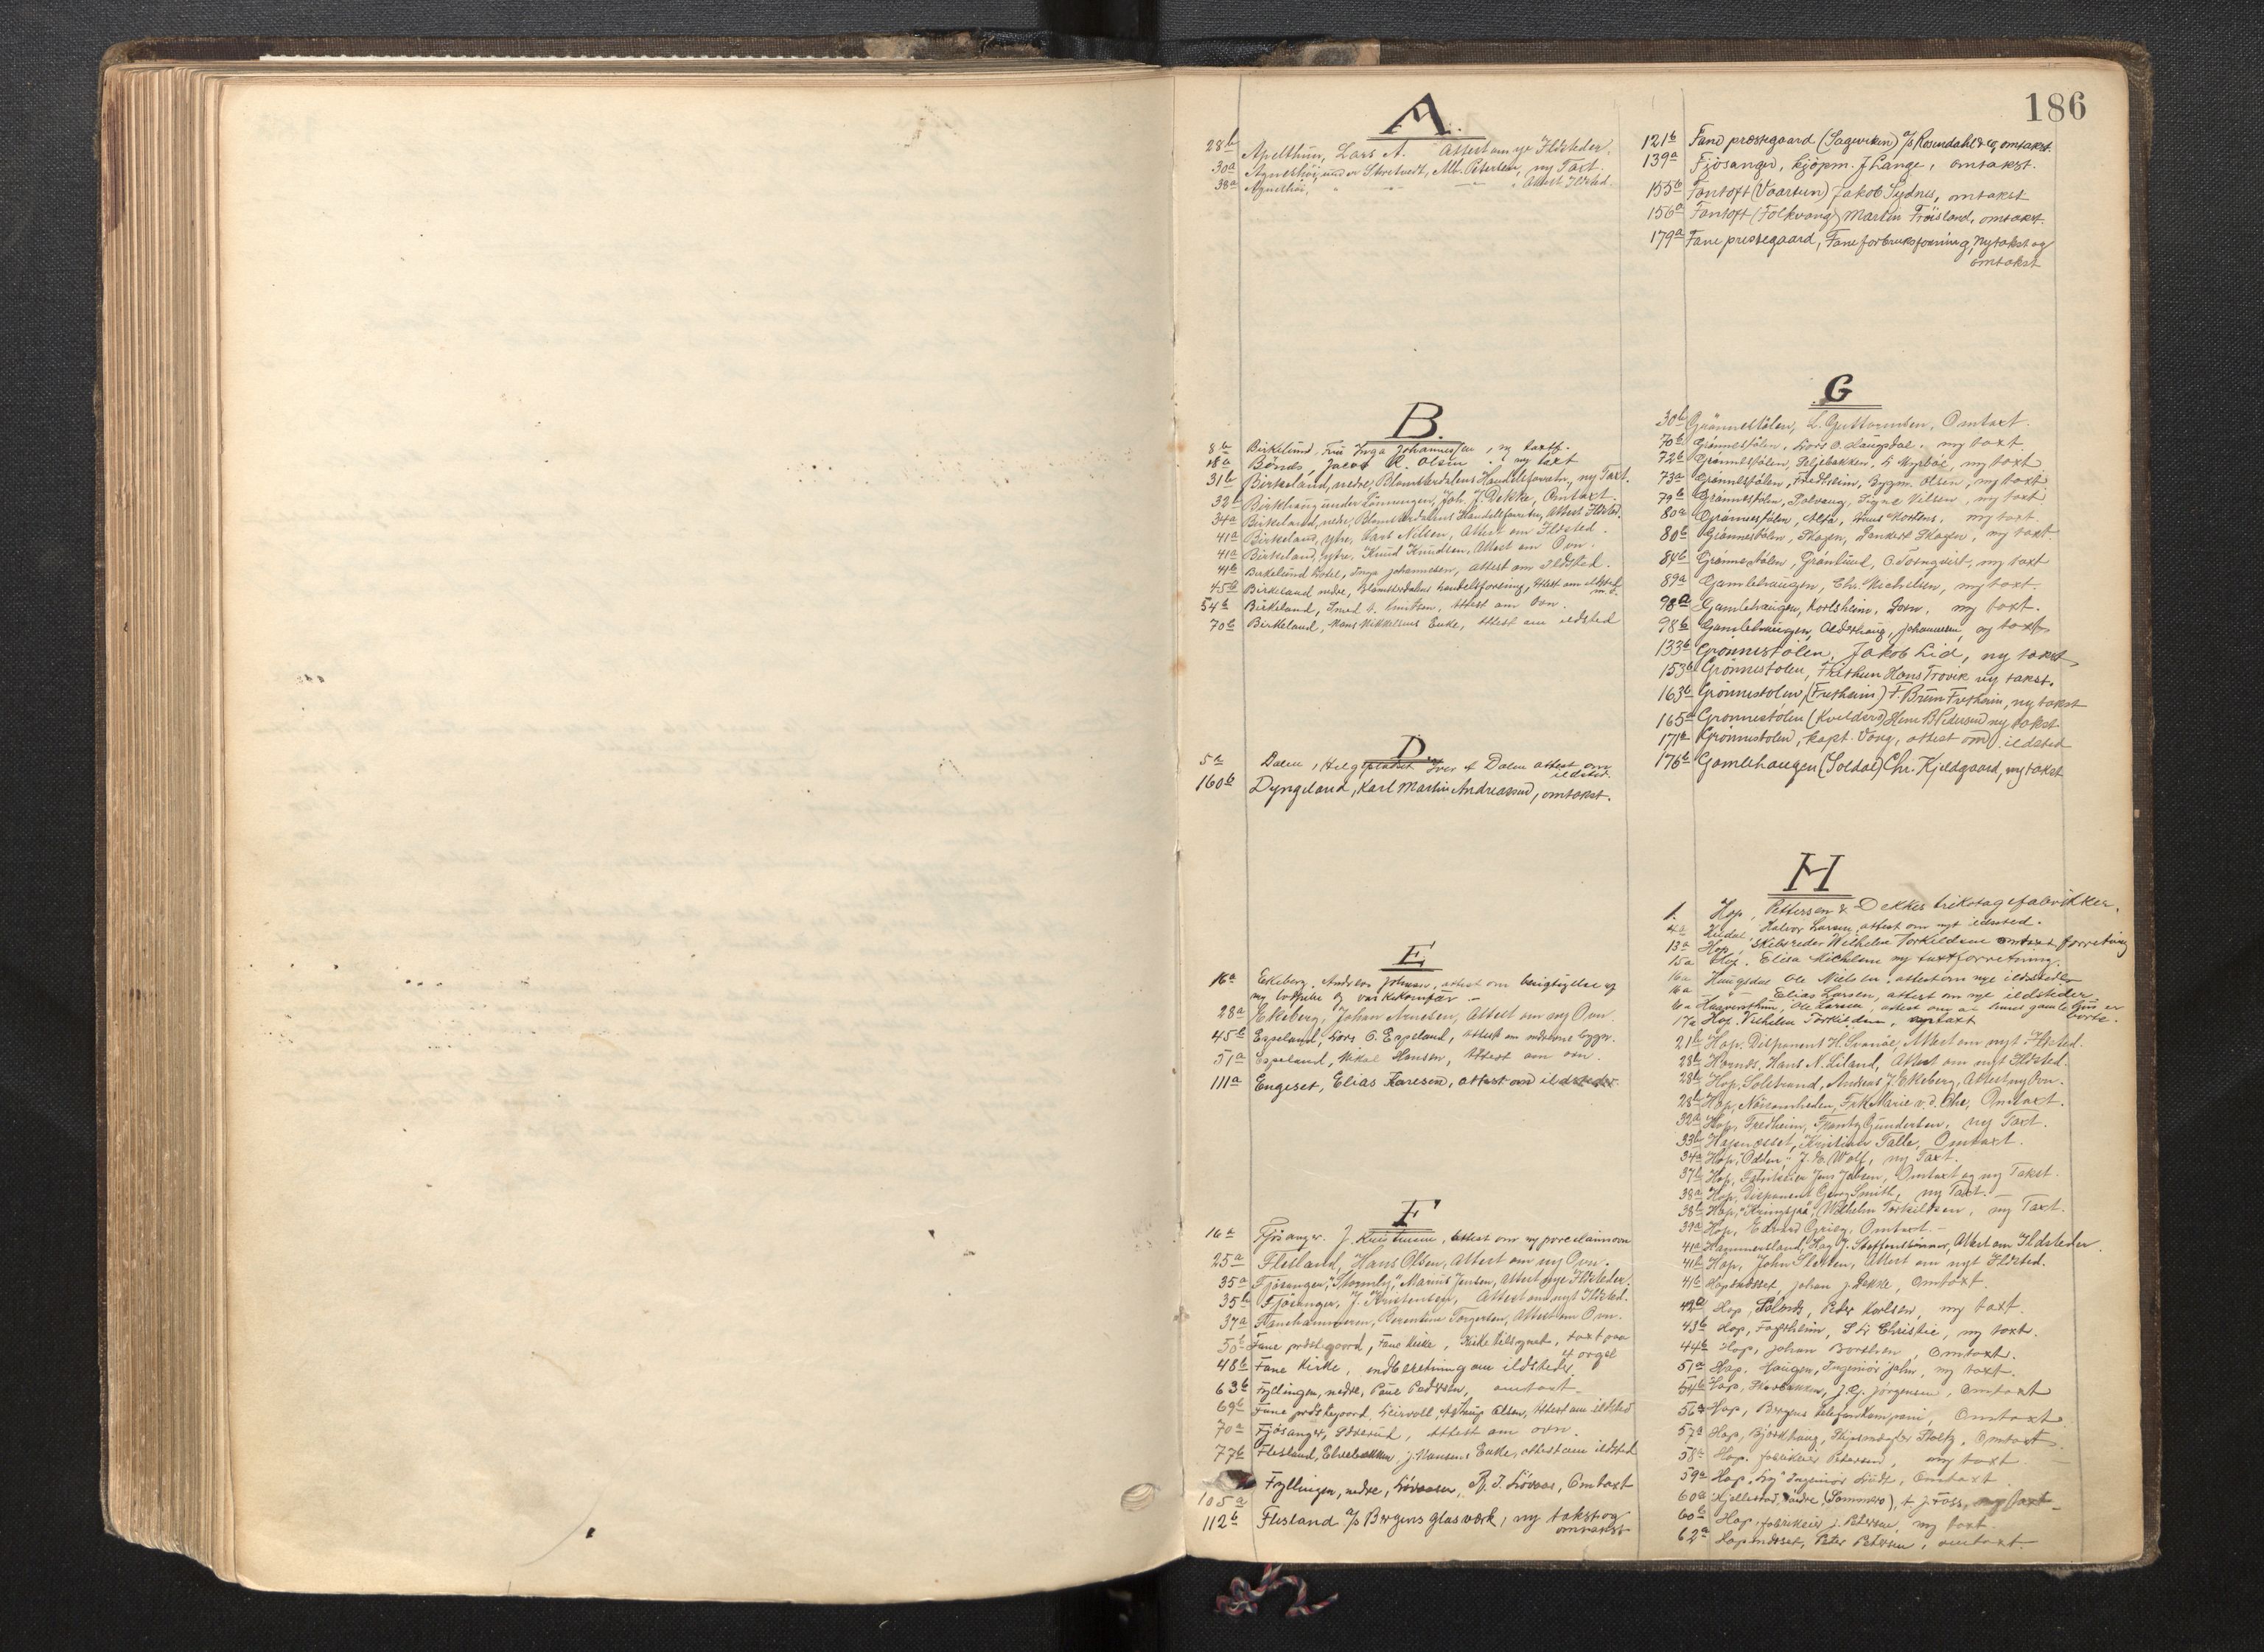 186
A.
28b Apelthun, Lars A. Attest om nye Ildsteder.
30a Agneshöi, under Stretvedt, Alb. Petersen, ny Taxt.
38a Agneshöi, " -"- -"- " Attest Ildsted.
B.
8b Birkelund, Fru Inga Johannessen, ny taxtf.
18a Bönæs, Jacob R. Olsen ny taxt
31b Birkeland, nedre, Blomsterdalens Handelsforretn., ny Taxt.
32b Birkhaug under Tönningen, Joh. J. Dekke, Omtaxt.
34a Birkeland, nedre, Blomsterdalens Handelsforretn, Attest Ildsted.
41a Birkeland, ytre, Lars Nilsen, Attest om Ildsted.
41a Birkeland, ytre, Knud Knudsen, Attest om Ovn.
41b Birkelund Hotel, Inga Johannesen, attest om Ildsted.
45b Birkeland nedre, Blomsterdalens handelsforening, Attest om ildsted m. v.
54b Birkeland, Smed A. Knutsen, Attest om Ovn.
70b Birkeland, Hans Mikkelsens Enke, Attest om ildsted
D.
5a Dalen, Helgeplasset Iver A Dalen attest om ildsted.
160b Dyngeland, Karl Martin Andreassen, omtakst.
E
16a Ekeberg. Andreas Johnsen, attest om besigtigelse af
ny loftpibe og vaskekomfür –
28a Ekeberg, Johan Arnesen, Attest om ny Ovn
45b Espeland, Lars O. Espeland, Attest om nedrevne bygn.
51a Espeland, Mikal Hansen, Attest om ovn.
111a Engeset, Elias Karesen, attest om ildsteder
F
16a Fjösanger. J. Kristensen, Attest om ny porcelainsovn
25a Flesland, Hans Olsen, Attest om ny Ovn.
35a Fjösanger, "Stormly", Marius Jensen, Attest nye Ildsteder.
35b Fjösanger, J. Kristensen, Attest om nyt Ildsted.
37a Fanehammeren, Berentine Torgersen, Attest om Ovn.
50b Fane prestegaard, Fane Kirke, Kirketilsynet, taxt paa orgel
48b Fane Kirke, indberetning om ildsted
63b Fyllingen, nedre, Paul Pedersen, omtaxt
69b Fane prestegaard, Leirvoll, Askup Olsen, Attest om ildsted
70a Fjösanger, Sæterud, Attest om ovn.
77b Flesland, Elvebakken, J. Hansens Enke, attest om ildsted
105a Fyllingen, nedre, Lövaasen, R. J. Lövaas, Omtaxt
112b Flesland A/s Bergens Glasverk, ny takst og omtakst
121b Fane præstegaard (Sagviken) A/s Rosendahl & Co, omtakst.
139a Fjösanger, kjöpm. J Lange, omtakst.
155b Fantoft (Vaartun) Jakob Sydnes, omtakst
156a Fantoft (Folkvang) Martin Fröisland, omtakst.
179a Fane prestegaard, Fane forbruksforening, ny takst og
omtakst
G
30b Grönnestölen, L. Guttormsen, Omtaxt.
70b Grönnestölen, Lars O. Haugsdal, ny taxt
72b Grönnestölen, Seljebakken, L Myrböe, ny taxt
73a Grönnestölen, Fredheim, Bygm. Olsen, ny taxt
79b Grönnestölen, Solvang, Signe Nilsen, ny taxt
80a Grönnestölen, Alfa, Hans Mortens, ny taxt.
80b Grönnestölen, Skogen, Lankert Skogen, ny taxt.
84b Grönnestölen, Grönlund, C. Törnquist, ny taxt
89a Gamlehaugen, Chr. Michelsen, ny taxt.
98a Gamlehaugen, Karlsheim, Dorn, ny taxt.
98b Gamlehaugen, Olderhaug, Johannesen, ny taxt
133b Grønnestölen, Jakob Lid, ny takst
153b Grönnestölen, Fliethun Hans Trovik ny takst.
163b Grönnestölen (Fretheim) F. Brun Fretheim, ny takst
165a Grönnestölen (Kveldsro) Herm B Pedersen ny takst
171a Grönnestölen, kapt. Vong, attest om ildsted
176b Gamlehaugen (Soldal) Chr. Kjeldgaard, ny takst
H
1. Hop, Pettersen & Dekkes trikotagefabrikker.
4a Heidal, Halvor Larsen, attest om nyt ildsted.
13a Hop, Skibsreder Wilhelm Torkildsen omtaxt forretning
15a Hop. Elisa Michelsen ny taxtforretning.
16a Haugsdal Ole Nielsen, attest om nye ildsteder
16a – " – Elias Larsen, attest om nye ildsteder
16a Ole Larsen, attest om at hans gamle hus er borte.
17a Hop. Vilhelm Torkildsen, nytaxt
21b Hop. Disponent H. Svanöe, Attest om nyt Ildsted.
28b Hornæs, Hans N. Liland, Attest om nyt Ildsted.
28b Hop, Solstrand, Andreas J. Ekeberg, Attest ny Ovn.
28b Hop, Nöisomheden, Frk Marie v. d. Ohe, Omtaxt.
32a Hop, Fredheim, Frantz Gundersen, ny Taxt.
33b Hopsnesset, Kristian Talle, Omtaxt.
34a Hop, "Odden", J. E. Wolf, ny Taxt.
37b Hop, Fabrikeier Jens Jebsen, Omtaxt og ny Takst.
38a Hop, Disponent Georg Smith, ny Taxt.
38b Hop, "Kringsjaa", Wilhelm Torkildsen, ny Taxt.
39a Hop, Edvard Grieg, Omtaxt. –
41a Hammersland, Hag. J. Steffensen, Attest om Ildsteder.
41b Hop, John Sletten, Attest om nyt Ildsted.
41b Hopsnesset Johan J. Dekke, Omtaxt.
42a Hop, Solnes, Peter Karlsen, ny taxt.
43b Hop, Fagerheim, S Chr Christie, ny taxt.
44b Hop, Johan Bertelsen, Omtaxt.
51a Hop. Haugen, Ingeniör Jahn, ny taxt.
54b Hop, Skarbakken, J. G. Jörgensen, Omtaxt
56a Hop, Bergens telefonkompani, Omtaxt.
57a Hop, Björkhaug, Skipsmægler Stoltz, Omtaxt
58a Hop. fabrikeier Petersen, ny taxt
59a Hop. "Ly" Ingeniör Lindt, Omtaxt
60a Hjellestad, nedre (Sommero), A. J. Foss, ny taxt –
60b Hop, fabrikeier J. Petersen, ny taxt
62a Hopsnesset, Peter Petersen, omtaxt.